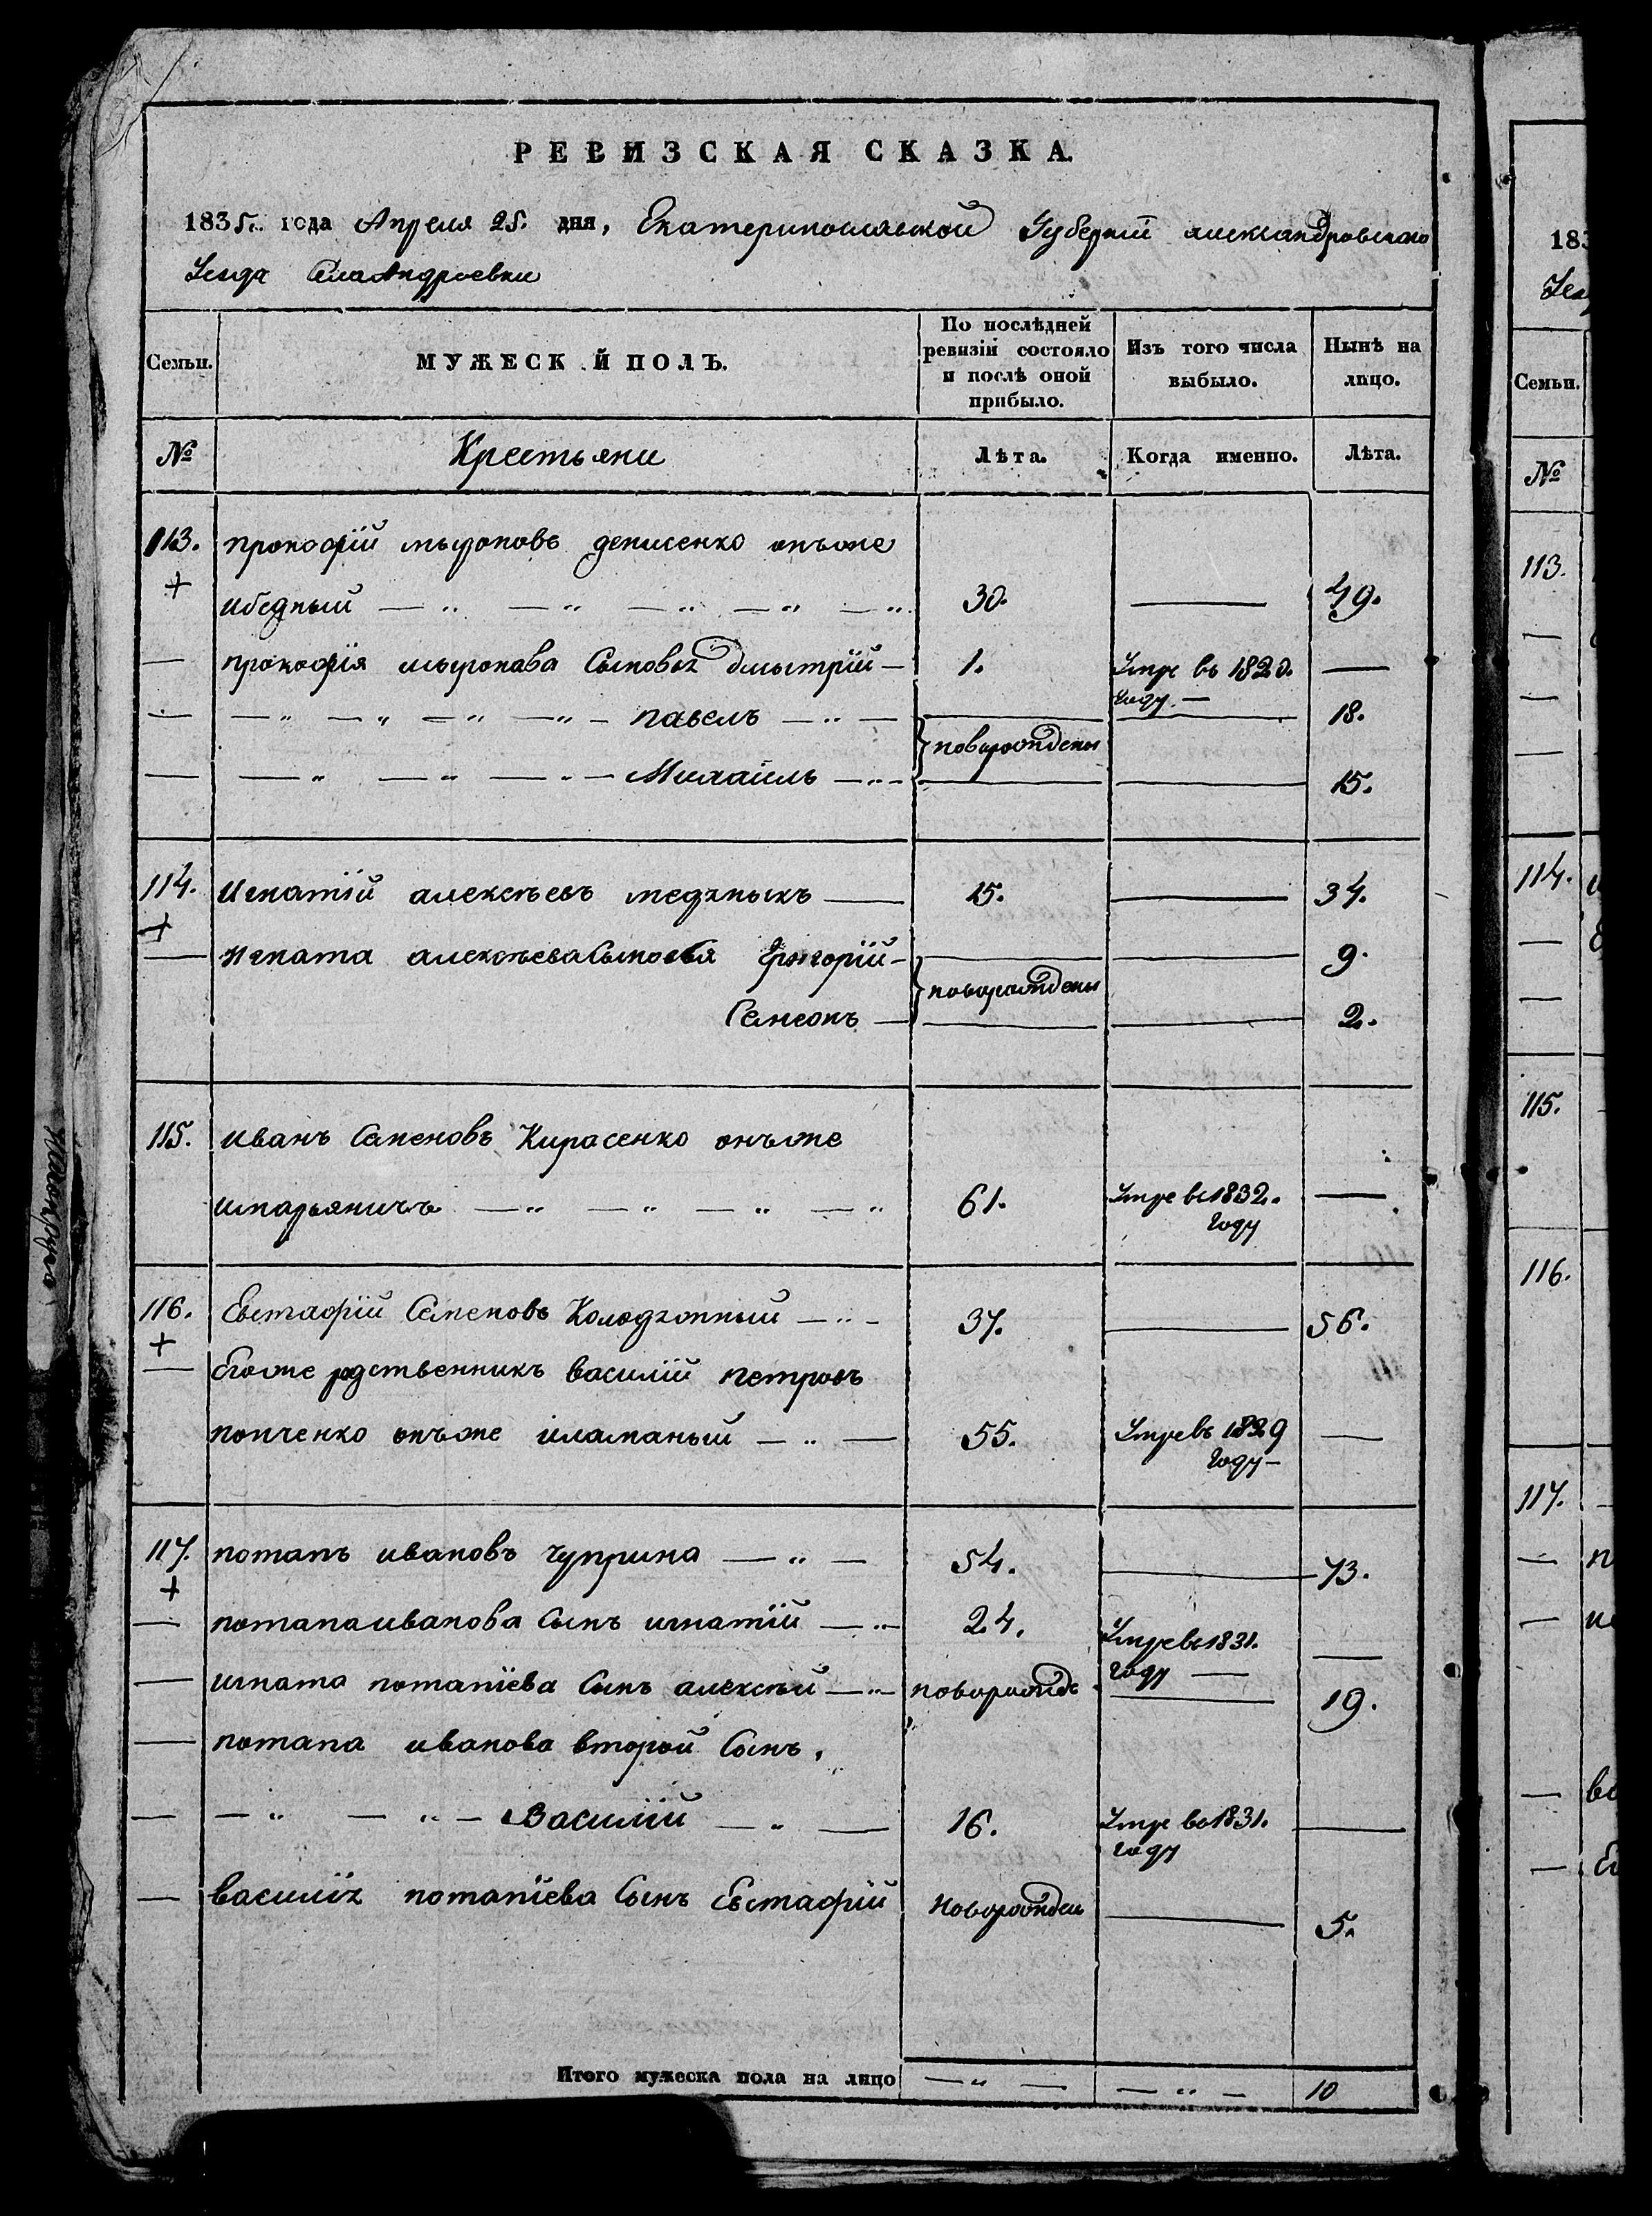 РЕВИЗСКАЯ СКАЗКА.
1835. года Апреля 25. дня, Екатеринославской Губерніи александровского
Уезда Села Андреевки
Семьи.
МУЖЕСК Й ПОЛЪ.
По послѣдней ревизіи состояло и послѣ оной прибыло.
Изъ того числа выбыло.
Нынѣ на лицо.
№ Крестьяне Лѣта. Когда именно. Лѣта.
113. прокофій мыроновъ денисенко онъже
+ ибедный — „ — „ — „ — „ — „ 30. — 49.
— прокофія мыронава Сыновья дмытрій — 1. Умре въ 1820. году — —
— — „ — „ — „ — „ — павелъ — „ — новорождены — 18.
— — „ — „ — „ — Михаилъ — „ — — 15.
114. Игнатій алексѣевъ — 15. — 34.
+
— игната алексѣева Сыновья Григорій — новорождены — 9.
Семеонъ — — 2.
115. иванъ Семеновъ Кирасенко онъже
— „ — „ — „ — „ 61. Умре въ 1832. году —
116. Евстафій Семеновъ — „ — 37. — 56.
+
— Егоже родственникъ василій петровъ
попченко онъже — „ — 55. Умре въ 1829 году — —
117. потапъ ивановъ чуприна — „ — 54. — 73.
+
— потапа иванова Сынъ игнатій — „ 24. Умре въ 1831. году — —
— игната потапіева Сынъ алексѣй — „ новорожде — 19.
— потапа иванова второй Сынъ,
— — „ — „ — Василій — „ — 16. Умре въ 1831. году —
— василія потапіева Сынъ Евстафій новорожден — 5.
Итого мужеска пола на лицо — „ — — „ — 10
183
Семьи.
№
113.
114.
115.
116.
117.